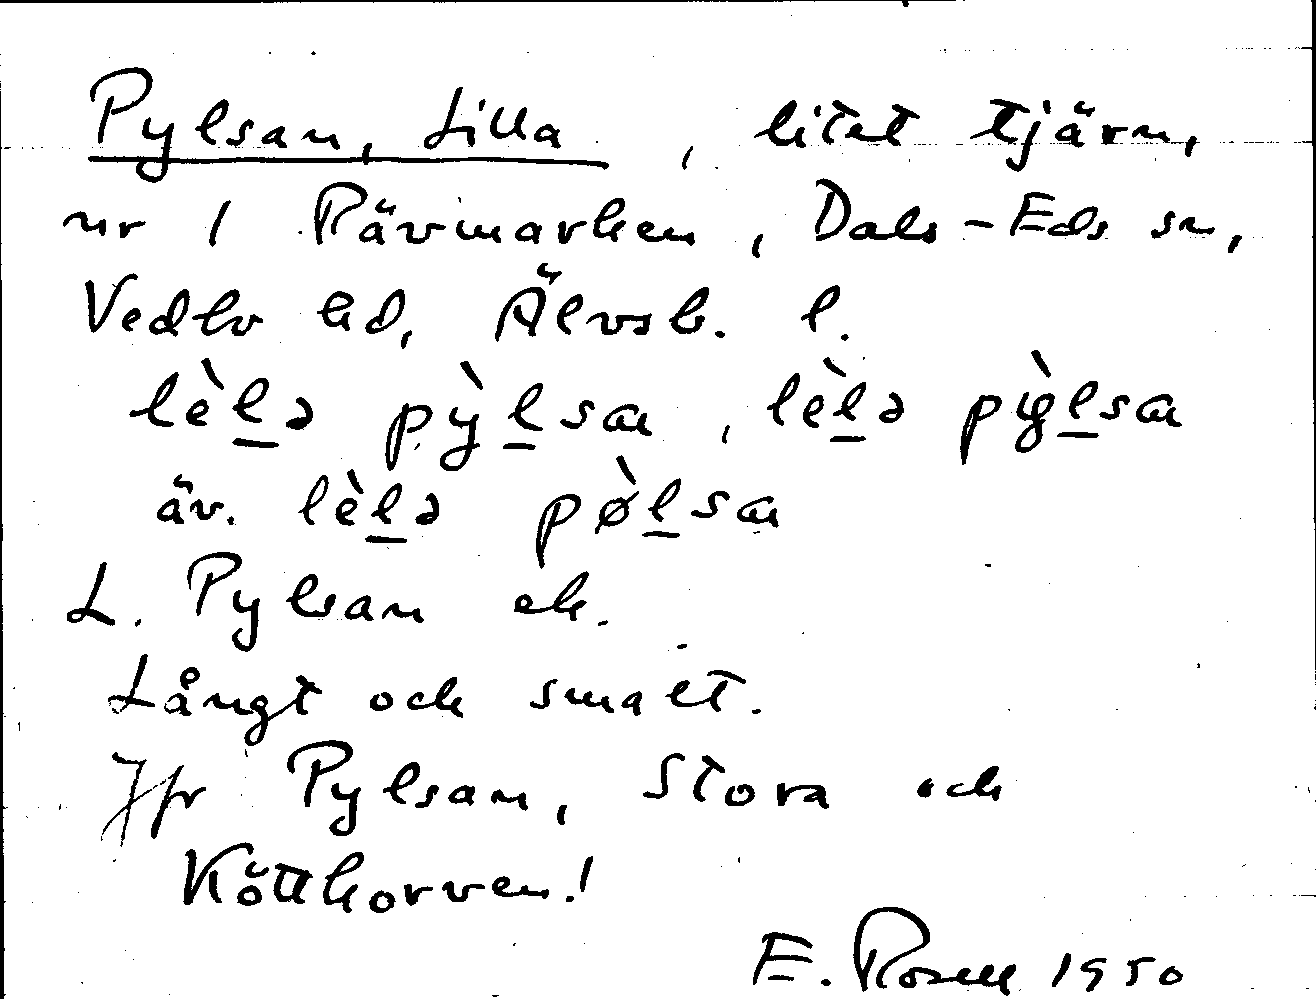 Pylsan, Lilla, litet tjärn,
nr 1 Rävmarken, Dals-Eds sn,
Vedbo hd, Älvsb. l.
lèlə pỳlsa, lèlə pỳlsa
äv. lèlə pø̀lsa
L. Pylsan ek.
Långt och smalt.
Jfr Pylsan, Stora och
Köttkorven!
E. Rosell 1950